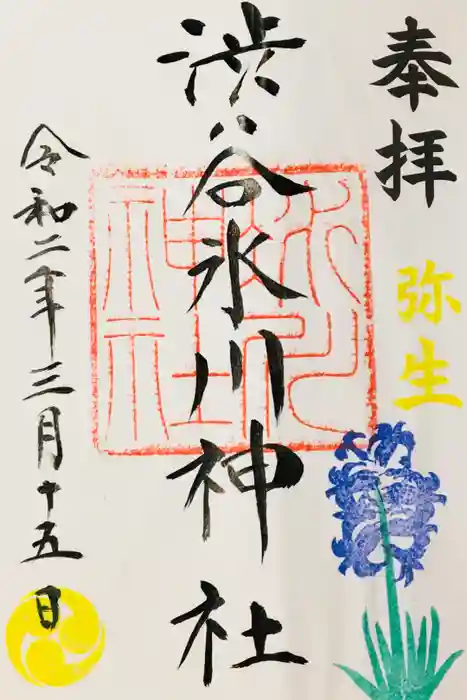 奉拝
弥生
渋谷氷川神社
令和二年三月十五日